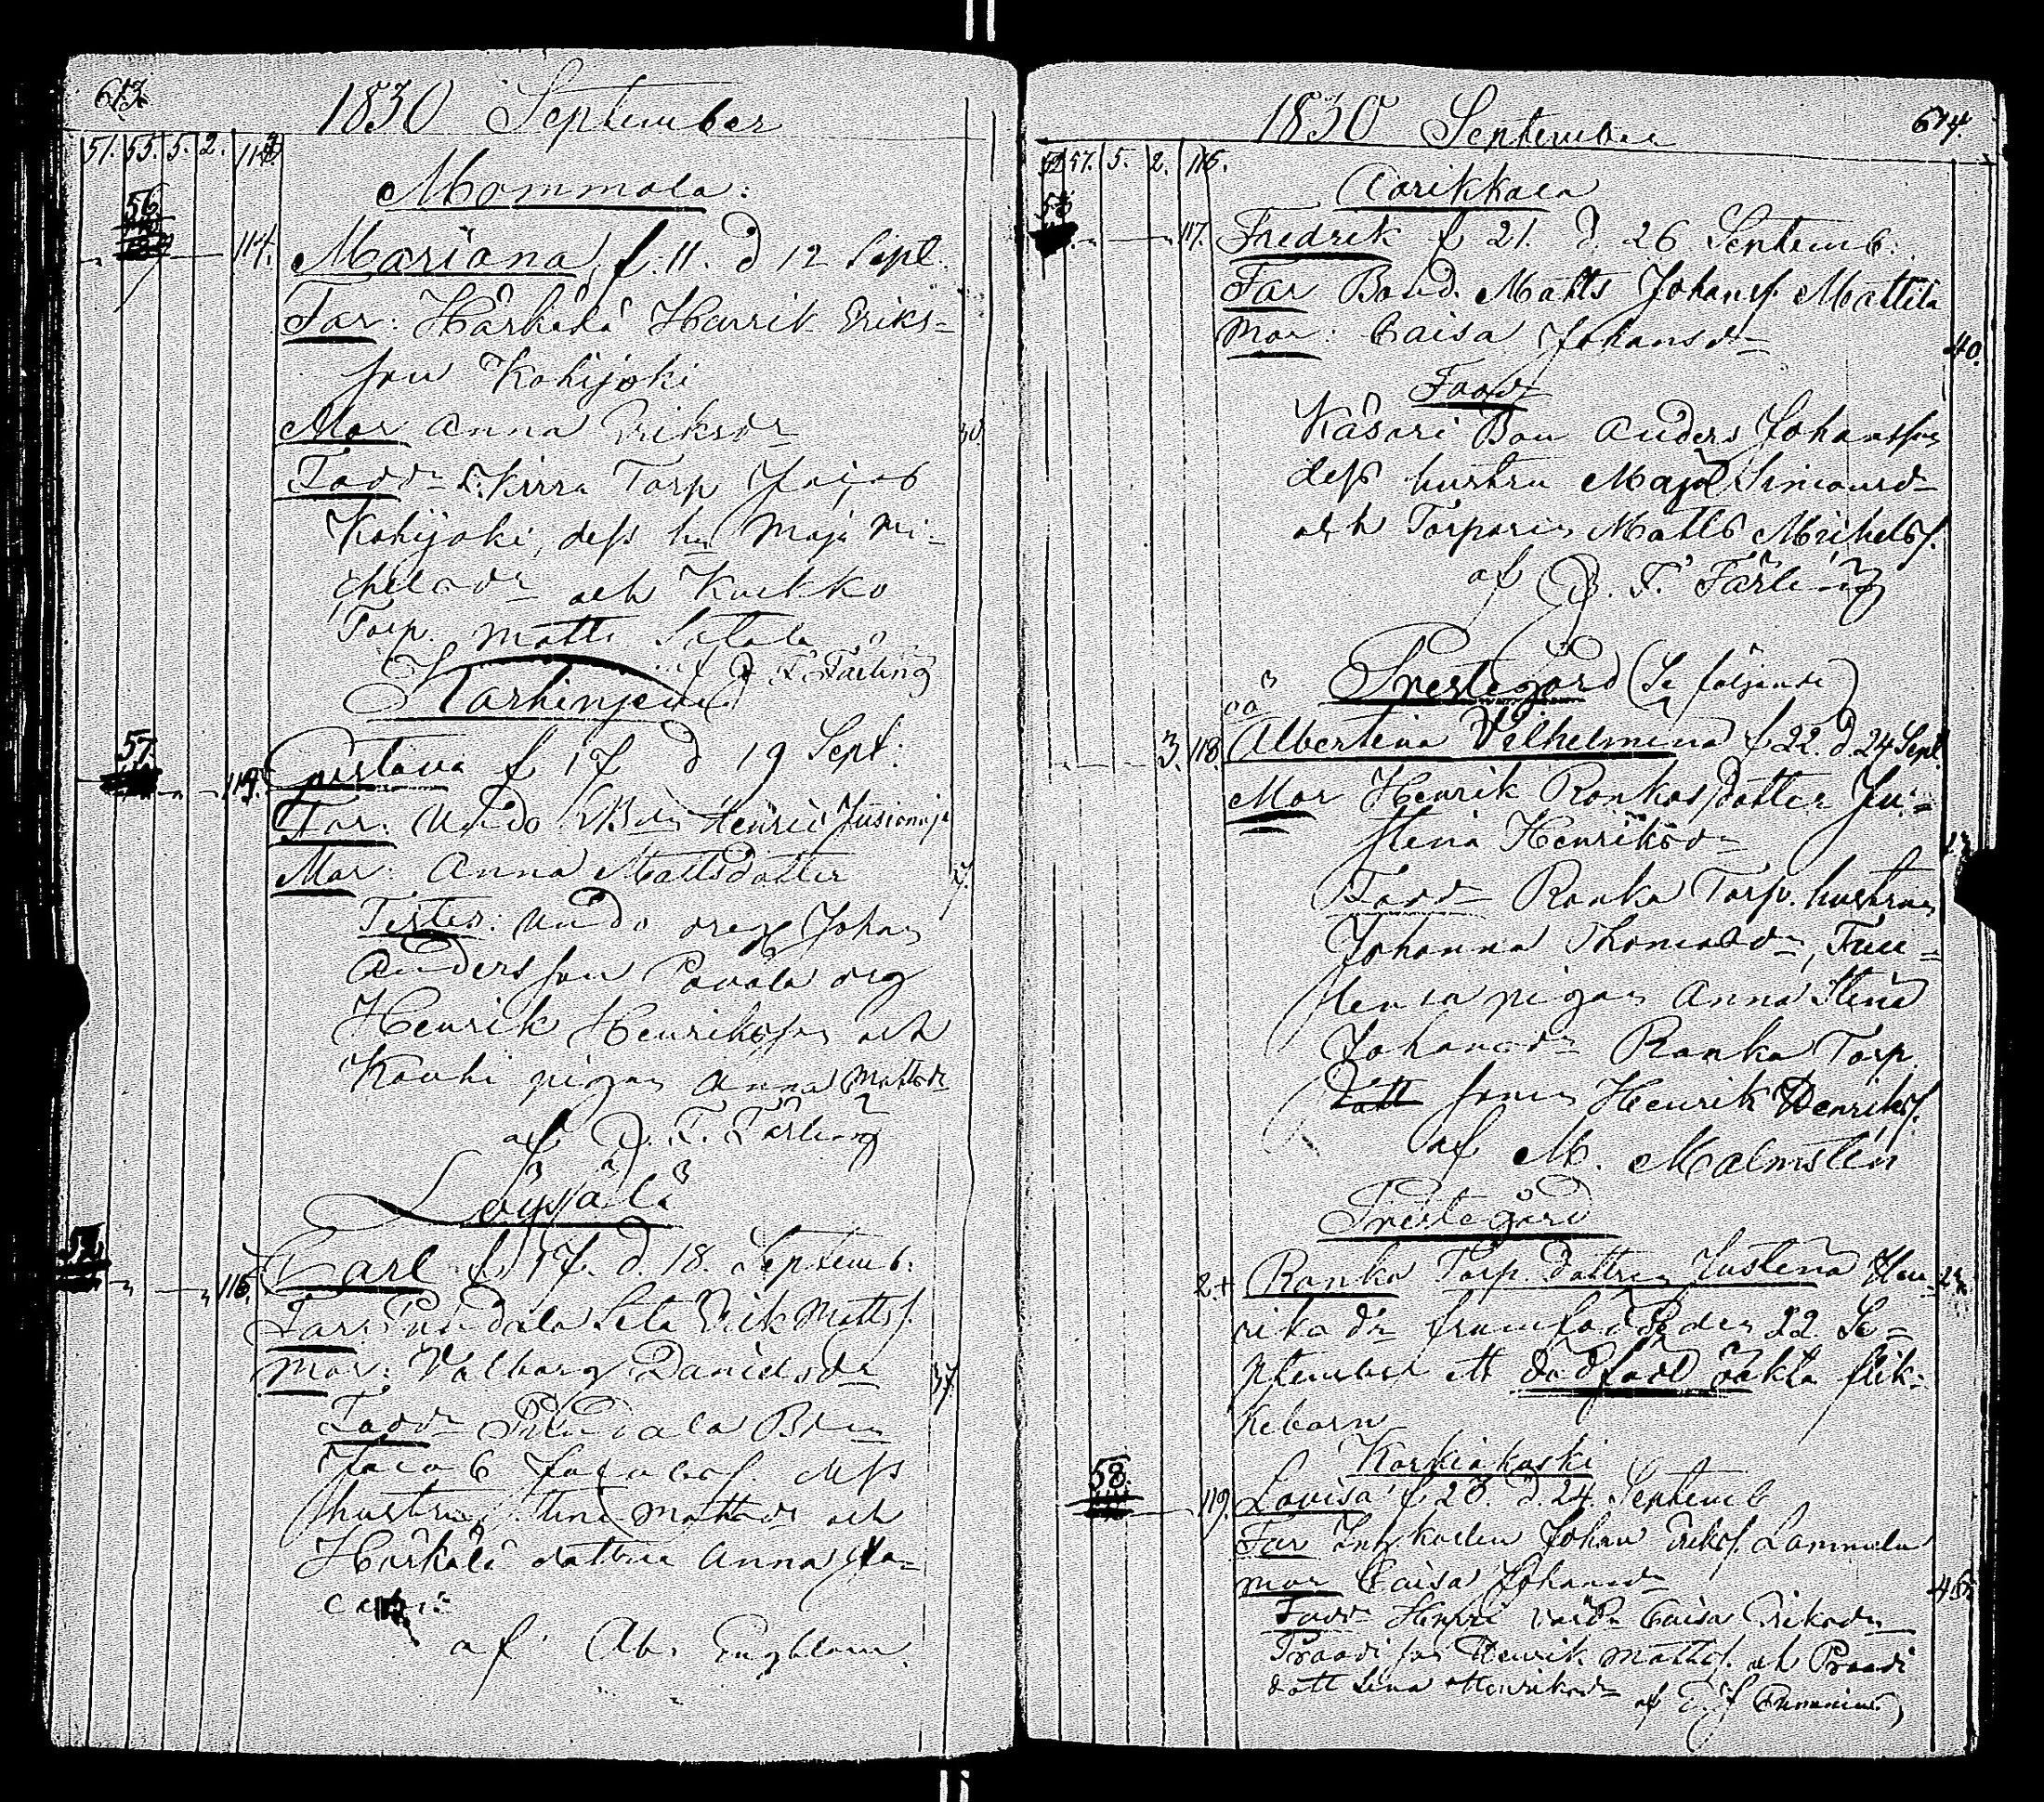 613.
1830 September
51. 55. 5. 2. 114
Mommola:
56
114. Mariana, f. 11. d 12 Sept.
Far: Härkälä Henrik Eriks-
son Kohijoki
Mor Anna Eriksdr
30
Fadd: Torp Jacob
Kohijoki, dess hu Maja Mi-
chelsdr och Kuckko
Torp. Matts
af D. F. Färling
Karhinjemi
57.
Gustava f 17 d 19 Sept:
Far: Uudo Henric
Mor: Anna Mattsdotter
Testes: Uudo dreng Johan
Andersson Pavola drg
Henrik Henrikss. och
Kauhi pigan Anna Mattsdr
af D. F. Färling
Löysälä
52.
116. Carl f. 17. d. 18. Septemb.
Far: Erik Mattss.
Mor: Valborg Danielsdr
37.
Faddr Bdn
Jacob Jacobss. dess
hustru Stina Mattsdr och
Härkälä dottren Anna
af Ab. Englom.
1830 September
614.
52 57. 5. 2. 116.
Corikkala
117. Fredrik f 21. d. 26 Septemb.
Far Bond. Matts Johanss. Mattila
Mor: Caisa Johansdr
40.
Faddr
Käsäri Bon Anders Johansson
dess hustru Maja Simonsdr
och Torparen Matts Michelss.
af D. F. Färling
Prestegård (Se följande)
oä
3. 118. Albertina Vilhelmina f 22. d 24 Sept.
Mor Henrik Ronkas dotter Ju-
stina Henriksdr
Faddr Ronka Torp. hustrun
Johanna Thomasdr,
pigan Anna Stina
Johansdr Ronka Torp.
sonen Henrik Henrikss.
af M. Malmstén
Prestegård
2.+ Ronka Torp. dottren Justina Hen-
riksdr framfödde den 22 Se-
ptember ett dödfödt oäkta flik-
kebarn
Korkiakoski
58.
119. Lovisa f 23. d. 24 Septemb
Far Johan Erikss. Lammela
Mor Caisa Johansdr
45
Faddr Henri Caisa Eriksdr
Praadi son Henrik Mattss. och Praadi
dott Lena Henriksdr